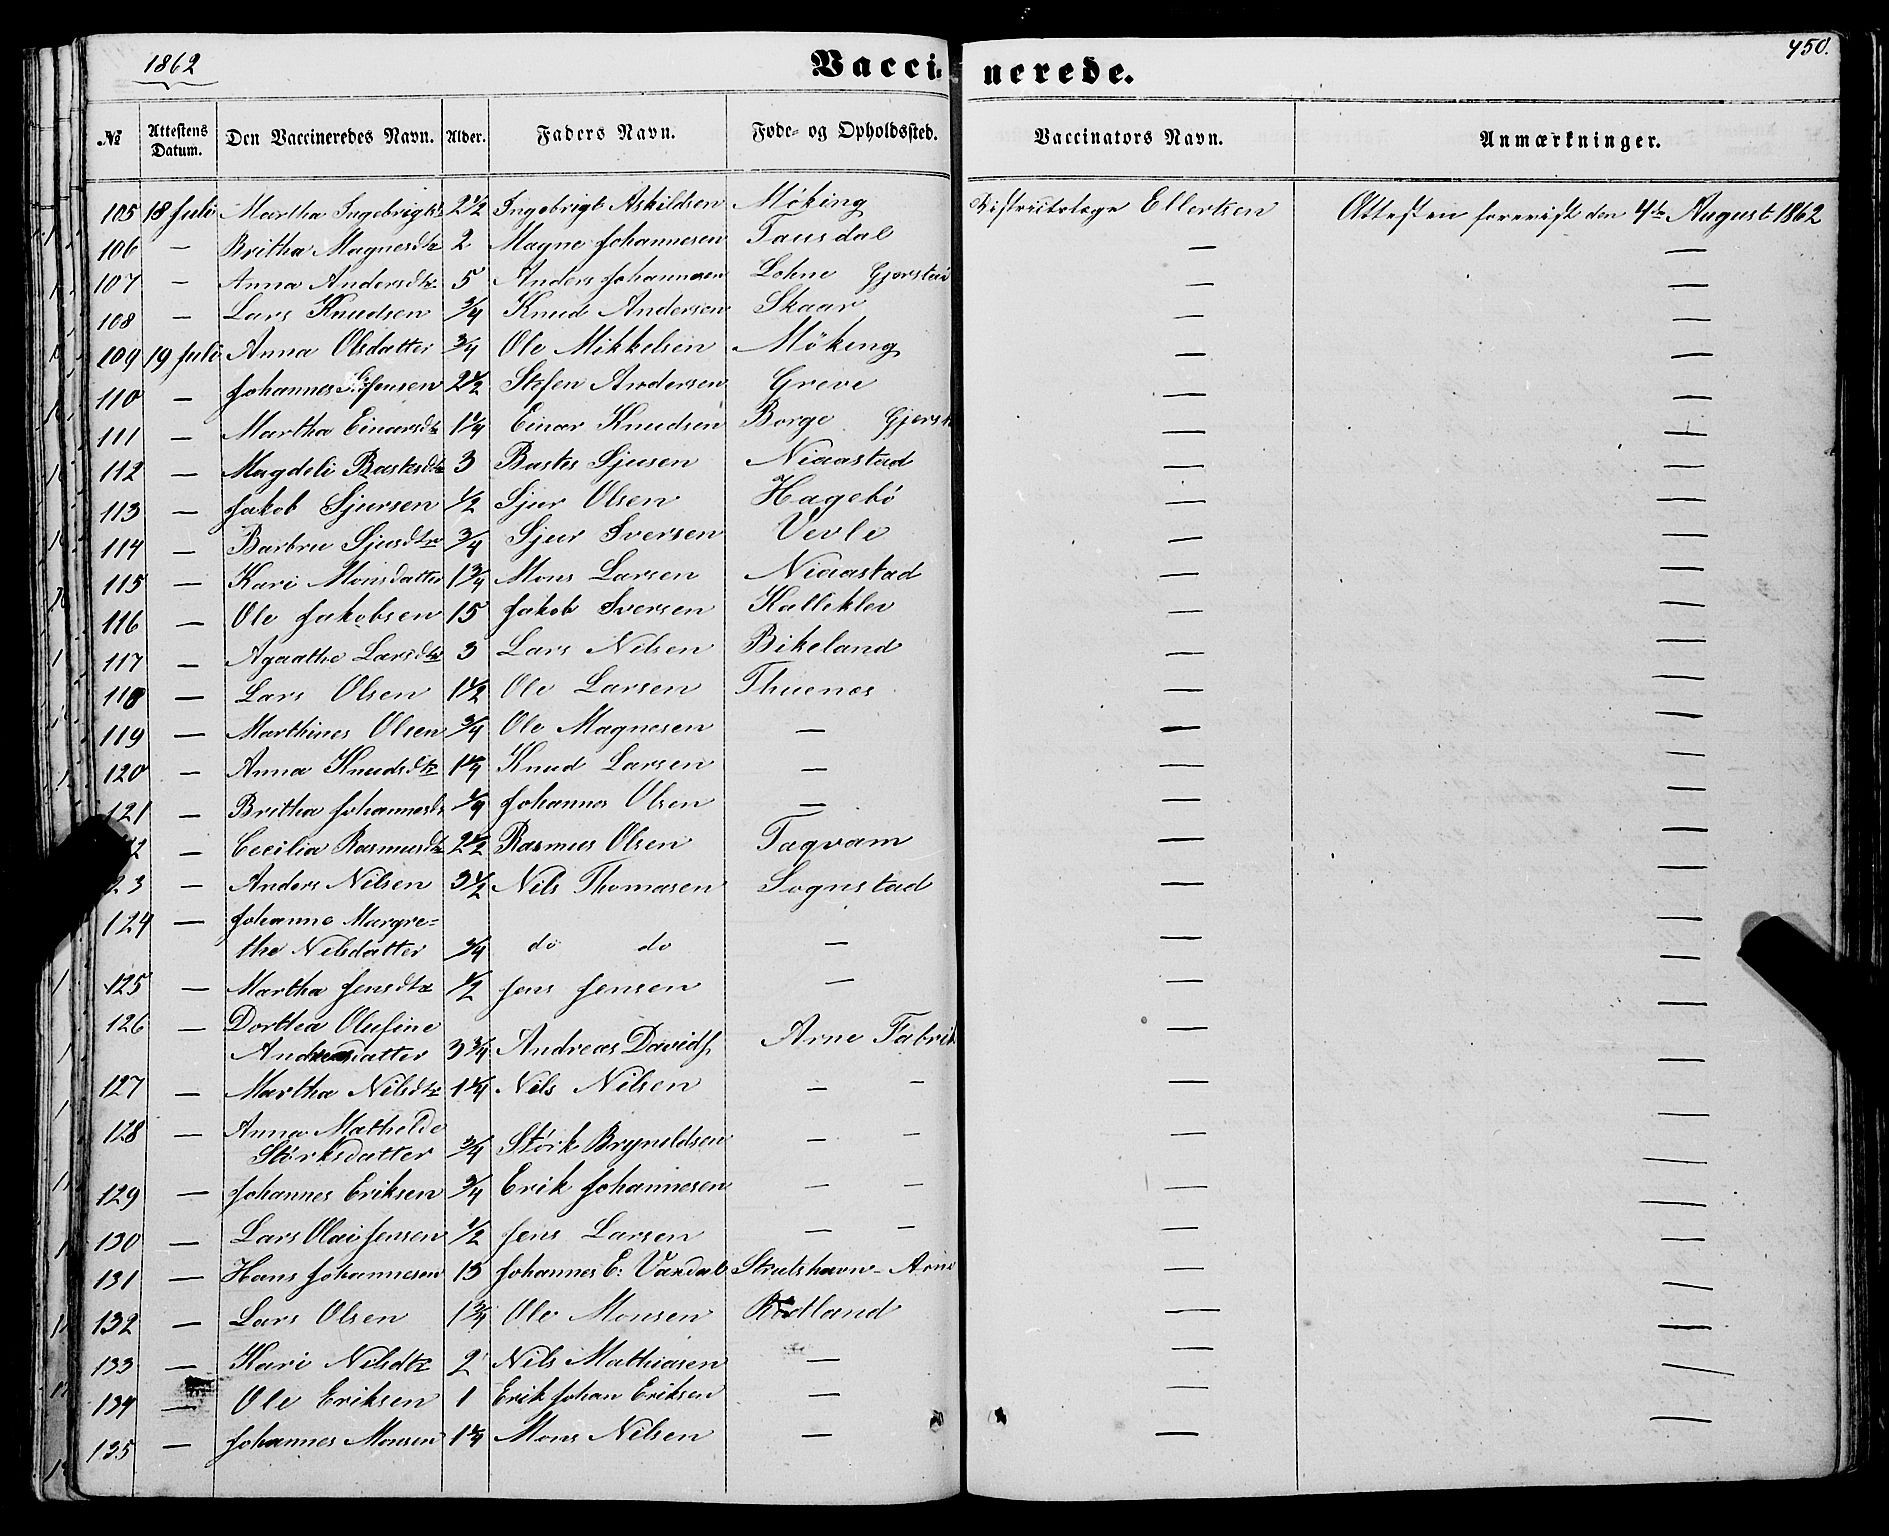 1862
Vaccinerede.
450.
№ Attestens Datum. Den Vaccineredes Navn. Alder. Faders Navn. Føde- og Opholdssted. Vaccinators Navn. Anmærkninger.
105 18 Juli Martha Ingebrigts 2½ Ingebrigt Askildsen Möking Districtslæge Ellertsen Attesten foreviist den 4de August 1862
106 — Britha Magnesdtr 2 Magne Johannesen Tausdal — —
107 — Anna Andersdtr 5 Anders Johannesen Lohne Gjerstad — —
108 — Lars Knudsen ¾ Knud Andersen Skaar — —
109 19 Juli Anna Olsdatter ¾ Ole Mikkelsen Möking — —
110 — Johannes Stefensen 2½ Stefen Andersen Greve — —
111 — Martha Einarsdtr 1¼ Einar Knudsen Borge Gjerst — —
112 — Magdeli Bastesdtr 3 Bastes Sjusen Niaastad — —
113 — Jakob Sjursen ½ Sjur Olsen Hagebö — —
114 — Barbru Sjusdtr ¾ Sjur Iversen Vevle — —
115 — Kari Monsdatter 1¾ Mons Larsen Niaastad — —
116 — Ole Jakobsen 15 Jakob Iversen Kalleklev — —
117 — Agaathe Larsdtr 3 Lars Nilsen Bikeland — —
118 — Lars Olsen 1½ Ole Larsen Thuenes — —
119 — Marthines Olsen ¾ Ole Magnesen — — —
120 — Anna Knudsdtr 1¼ Knud Larsen — — —
121 — Britha Johannesdr ¼ Johannes Olsen — — —
2 — Cecilia Rasmusdtr 2½ Rasmus Olsen Tagvam — —
23 — Anders Nilsen 3½ Nils Thomasen Sognstad — —
124 — Johanne Margre=
the Nilsdatter ¾ do do — — —
125 — Martha Jensdtr ½ Jens Jensen — — —
126 — Dorthea Olufine
Andreasdatter 3¾ Andreas Davids Arne Fabrik — —
127 — Martha Nilsdtr 1¼ Nils Nilsen — — — —
128 — Anna Mathilde
Störksdatter ¾ Störk Bryneldsen — — — —
129 — Johannes Eriksen ¾ Erik Johannesen — — — —
130 — Lars Olai Jensen ½ Jens Larsen — — — —
131 — Hans Johannesen 13 Johannes E: Vandal Strutshavn - Arne — —
132 — Lars Olsen 1¾ Ole Monsen — —
133 — Kari Nilsdtr 2 Nils Mathiasen — — —
134 — Ole Eriksen 1 Erik Johan Eriksen — — —
135 — Johannes Monsen 1¼ Mons Nilsen — — —